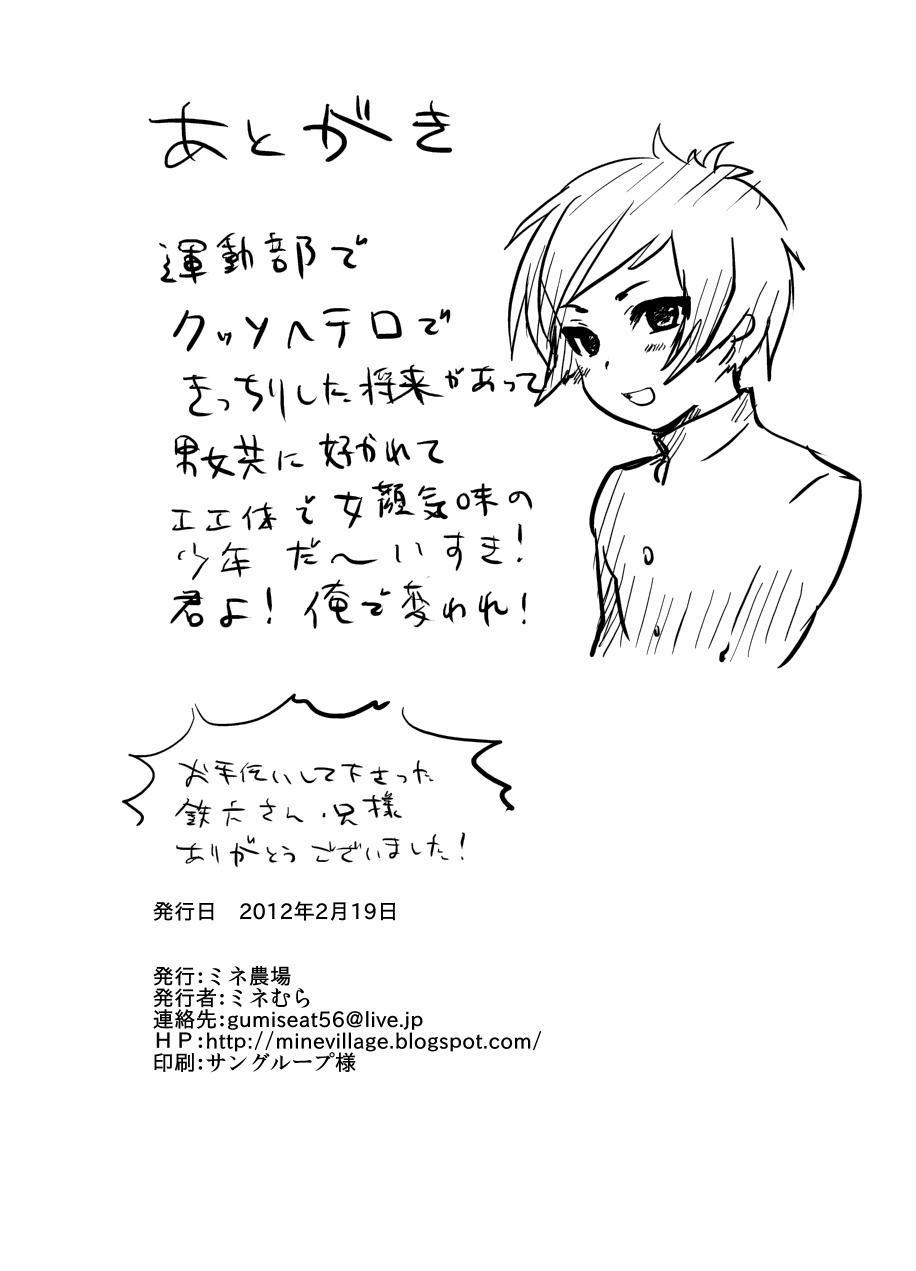 あとがき
運動部で
クッソヘテロで
きっちりした将来があって
男女共に好かれて
エエ体で女顔気味の
少年 だ〜いすき!
君よ! 俺で変われ!
お手伝いして下さった
鉄六さん・兄様
ありがとうございました!
発行日　2012年2月19日
発行:ミネ農場
発行者:ミネむら
連絡先:gumiseat56@live.jp
ＨＰ:http://minevillage.blogspot.com/
印刷:サングループ様